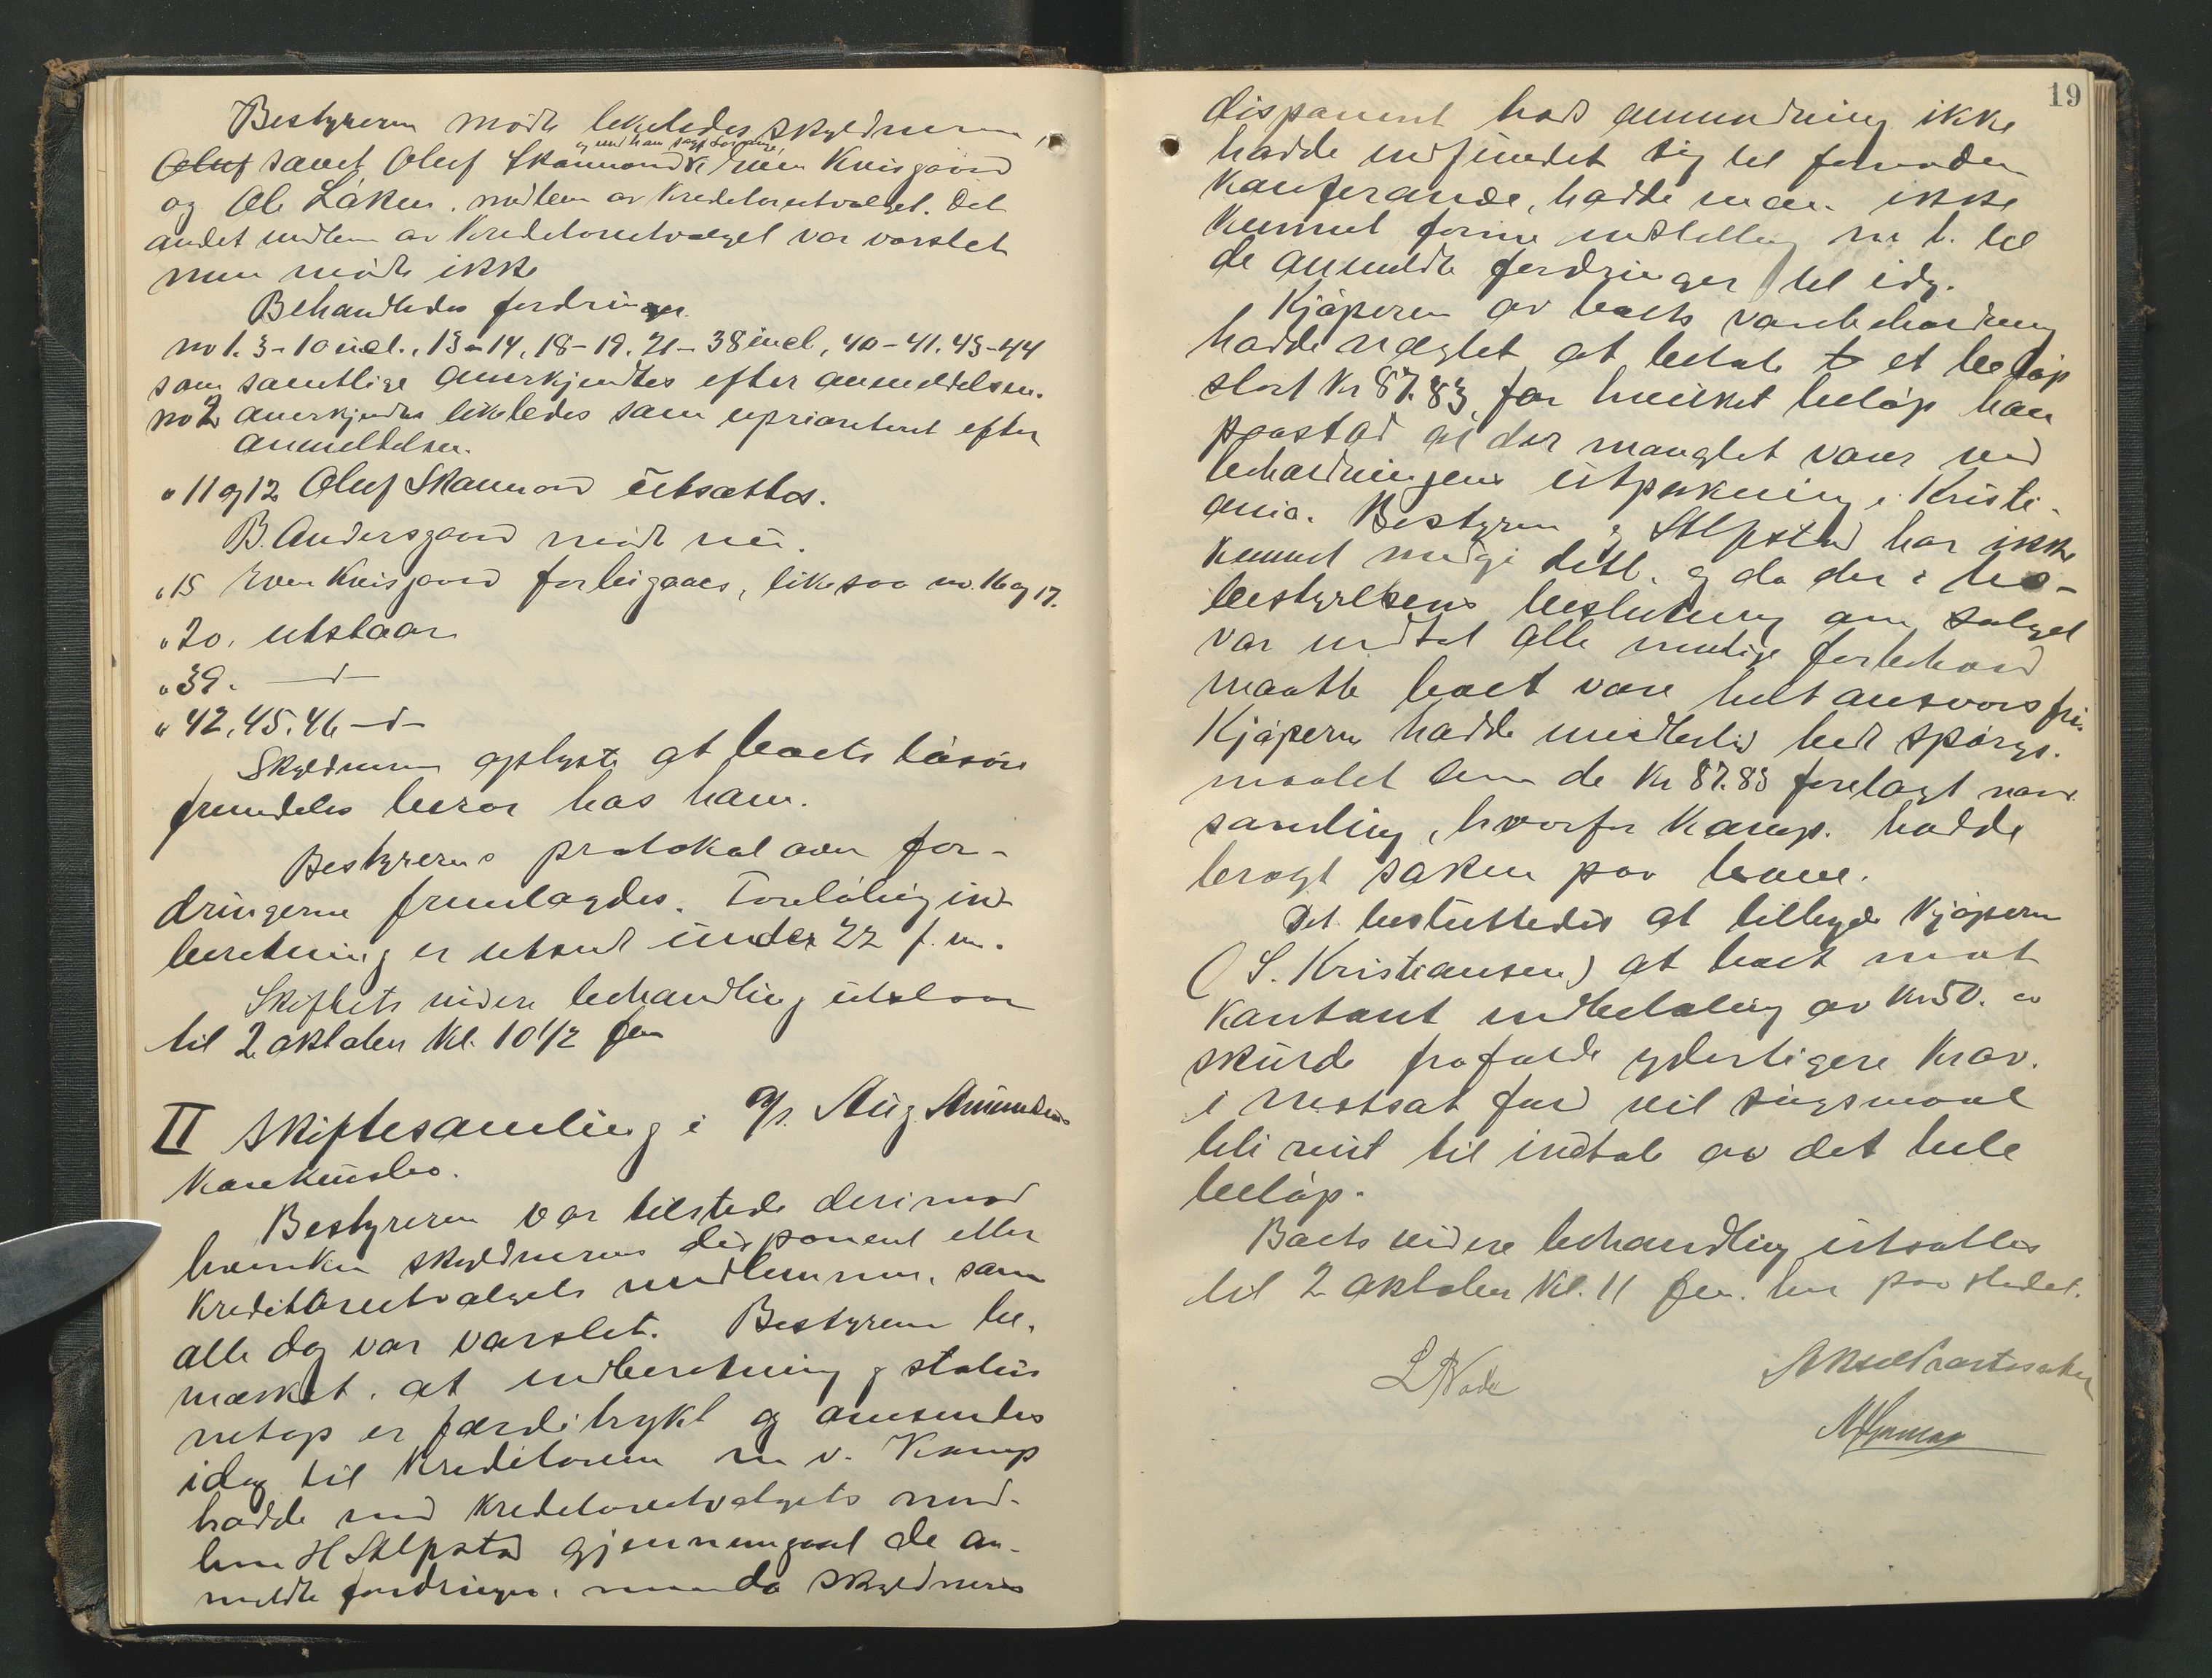 Bestyreren mødte likeledes skyldneren,
og med ham sagf. Lorange,
Oluf samt Oluf Skammord Even Kvisgaard
og Ole Låken. medlem av Kreditorutvalget. Det
andet medlem av Kreditorutvalget var varslet
men mødte ikke
Behandledes fordringer.
no 1. 3-10 incl., 13-14, 18-19. 21-38 incl, 40-41. 43-44
som samtlige anerkjendtes efter anmeldelsen.
no 2 anerkjendes likeledes som uprioritert efter
anmeldelsen.
" 11 og 12 Oluf Skammord utsattes.
B. Andersgaard mødte nu.
" 15 Even Kvisgaard forbigaaes, likesaa no. 16 og 17.
" 20. utstaar
" 39. —d—
" 42. 45. 46 —d—
Skyldneren oplyste at boets løsøre
fremdeles beror hos ham.
Bestyrerens protokol over for-
dringerne fremlagdes. Foreløbig ind-
beretning er utsendt under 22 f.m.
Skiftets videre behandling utstaar
til 2 oktober kl. 10 1/2 fm
II Skiftesamling i A/s. Aug. Amundsens
Konkursbo.
Bestyreren var tilstede derimod
hverken skyldnerens disponent eller
Kreditorutvalgets medlemmer, som
alle dog var varslet. Bestyreren be-
merket at indberetning og status
netop er færdigtrykt og avsendes
idag til Kreditorerne m v. Komp
hadde med Kreditorutvalgets med-
lem H Stlpstad gjennemgaat de an-
meldte fordringer, men da skyldnerens
19
disponent trods anmodning ikke
hadde indfundet sig til formøden
konferanse, hadde man ikke
kunnet forme indstilling m. h. til
de anmeldte fordringer til idg.
Kjøperen av boets varebeholdning
hadde nægtet at betale et beløp
stort kr 87.83, for hvilket beløp han
paastod at der manglet varer ved
beholdningens utpakning i Kristi-
ania. Bestyreren og Stlpstad har ikke
kunnet medgi dette. og da der i bo-
bestyrelsens beslutning om salget
var indtat alle mulige forbehold
maatte boet være helt ansvarsfri.
Kjøperen hadde imidlertid bedt spørgs-
maalet om de kr 87.83 forelagt
samling, hvorfor Komp. hadde
bragt saken paa bane.
Det besluttedes at tilbyde Kjøperen
(S. Kristiansen) at boet mot
kontant indbetaling av kr 50. —
skulde frafalde yderligere krav.
i motsat fald vil søgsmaal
bli reist til indtale av det hele
beløp.
Boets videre behandling utsattes
til 2 oktober kl. 11 fm. her paa stedet.